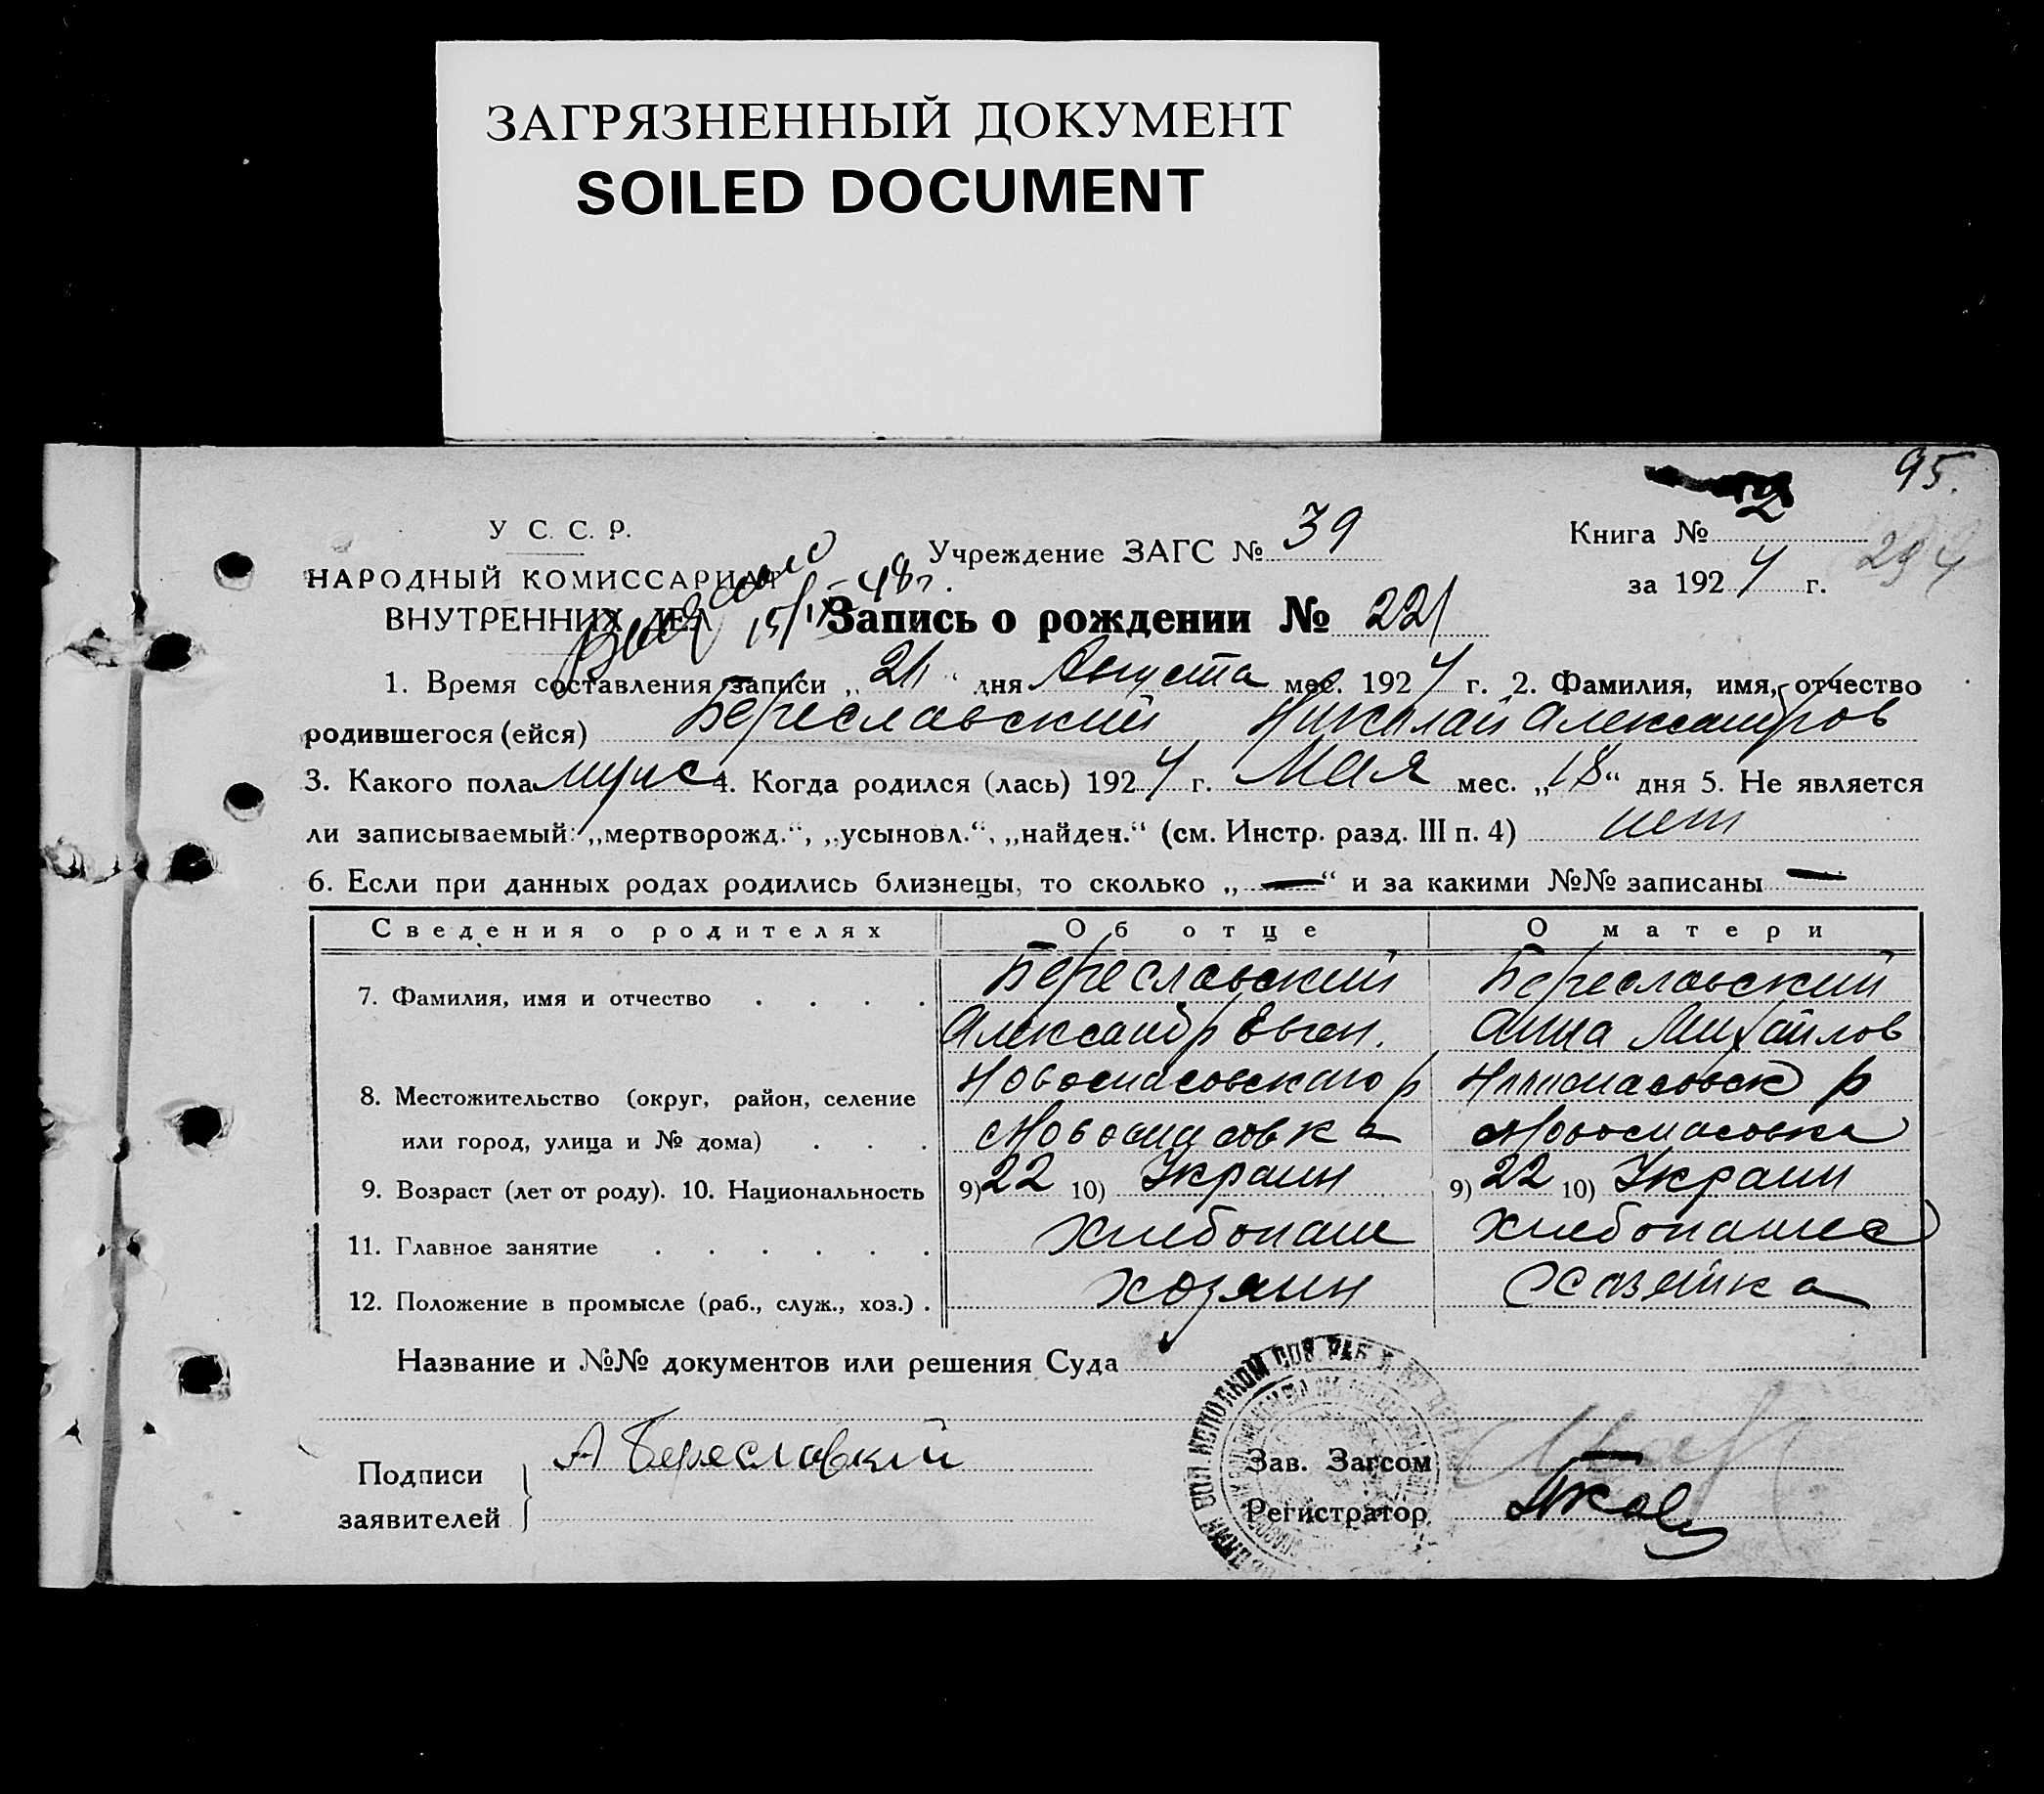 ЗАГРЯЗНЕННЫЙ ДОКУМЕНТ
SOILED DOCUMENT
95.
У С. С. Р.
НАРОДНЫЙ КОМИССАРИАТ
ВНУТРЕННИХ ДЕЛ
15/IX-48г.
Учреждение ЗАГС № 39
Книга № 2
за 1924 г.
294
Запись о рождении № 221
1. Время составления записи „21“ дня Августа мес. 1924 г. 2. Фамилия, имя, отчество
родившегося (ейся) Береславский Николай Александров
3. Какого пола мужс 4. Когда родился (лась) 1924 г. Мая мес. „18“ дня 5. Не является
ли записываемый: „мертворожд.“, „усыновл.“, „найден.“ (см. Инстр. разд. III п. 4) нет
6. Если при данных родах родились близнецы, то сколько „—“ и за какими №№ записаны —
Сведения о родителях Об отце О матери
7. Фамилия, имя и отчество . . . . Береславский Береславский
Александр Евген. Анна Михайлов
8. Местожительство (округ, район, селение Новоспасовского р Новоспасовск р
или город, улица и № дома) . . . Новоспасовка Новоспасовка
9. Возраст (лет от роду). 10. Национальность 9) 22 10) Украин 9) 22 10) Украин
11. Главное занятие . . . . . . Хлебопаш Хлебопашес
12. Положение в промысле (раб., служ., хоз.) . хозяин Хазяйка
Название и №№ документов или решения Суда
Подписи
заявителей
А Береславкий
Зав. Загсом
Регистратор